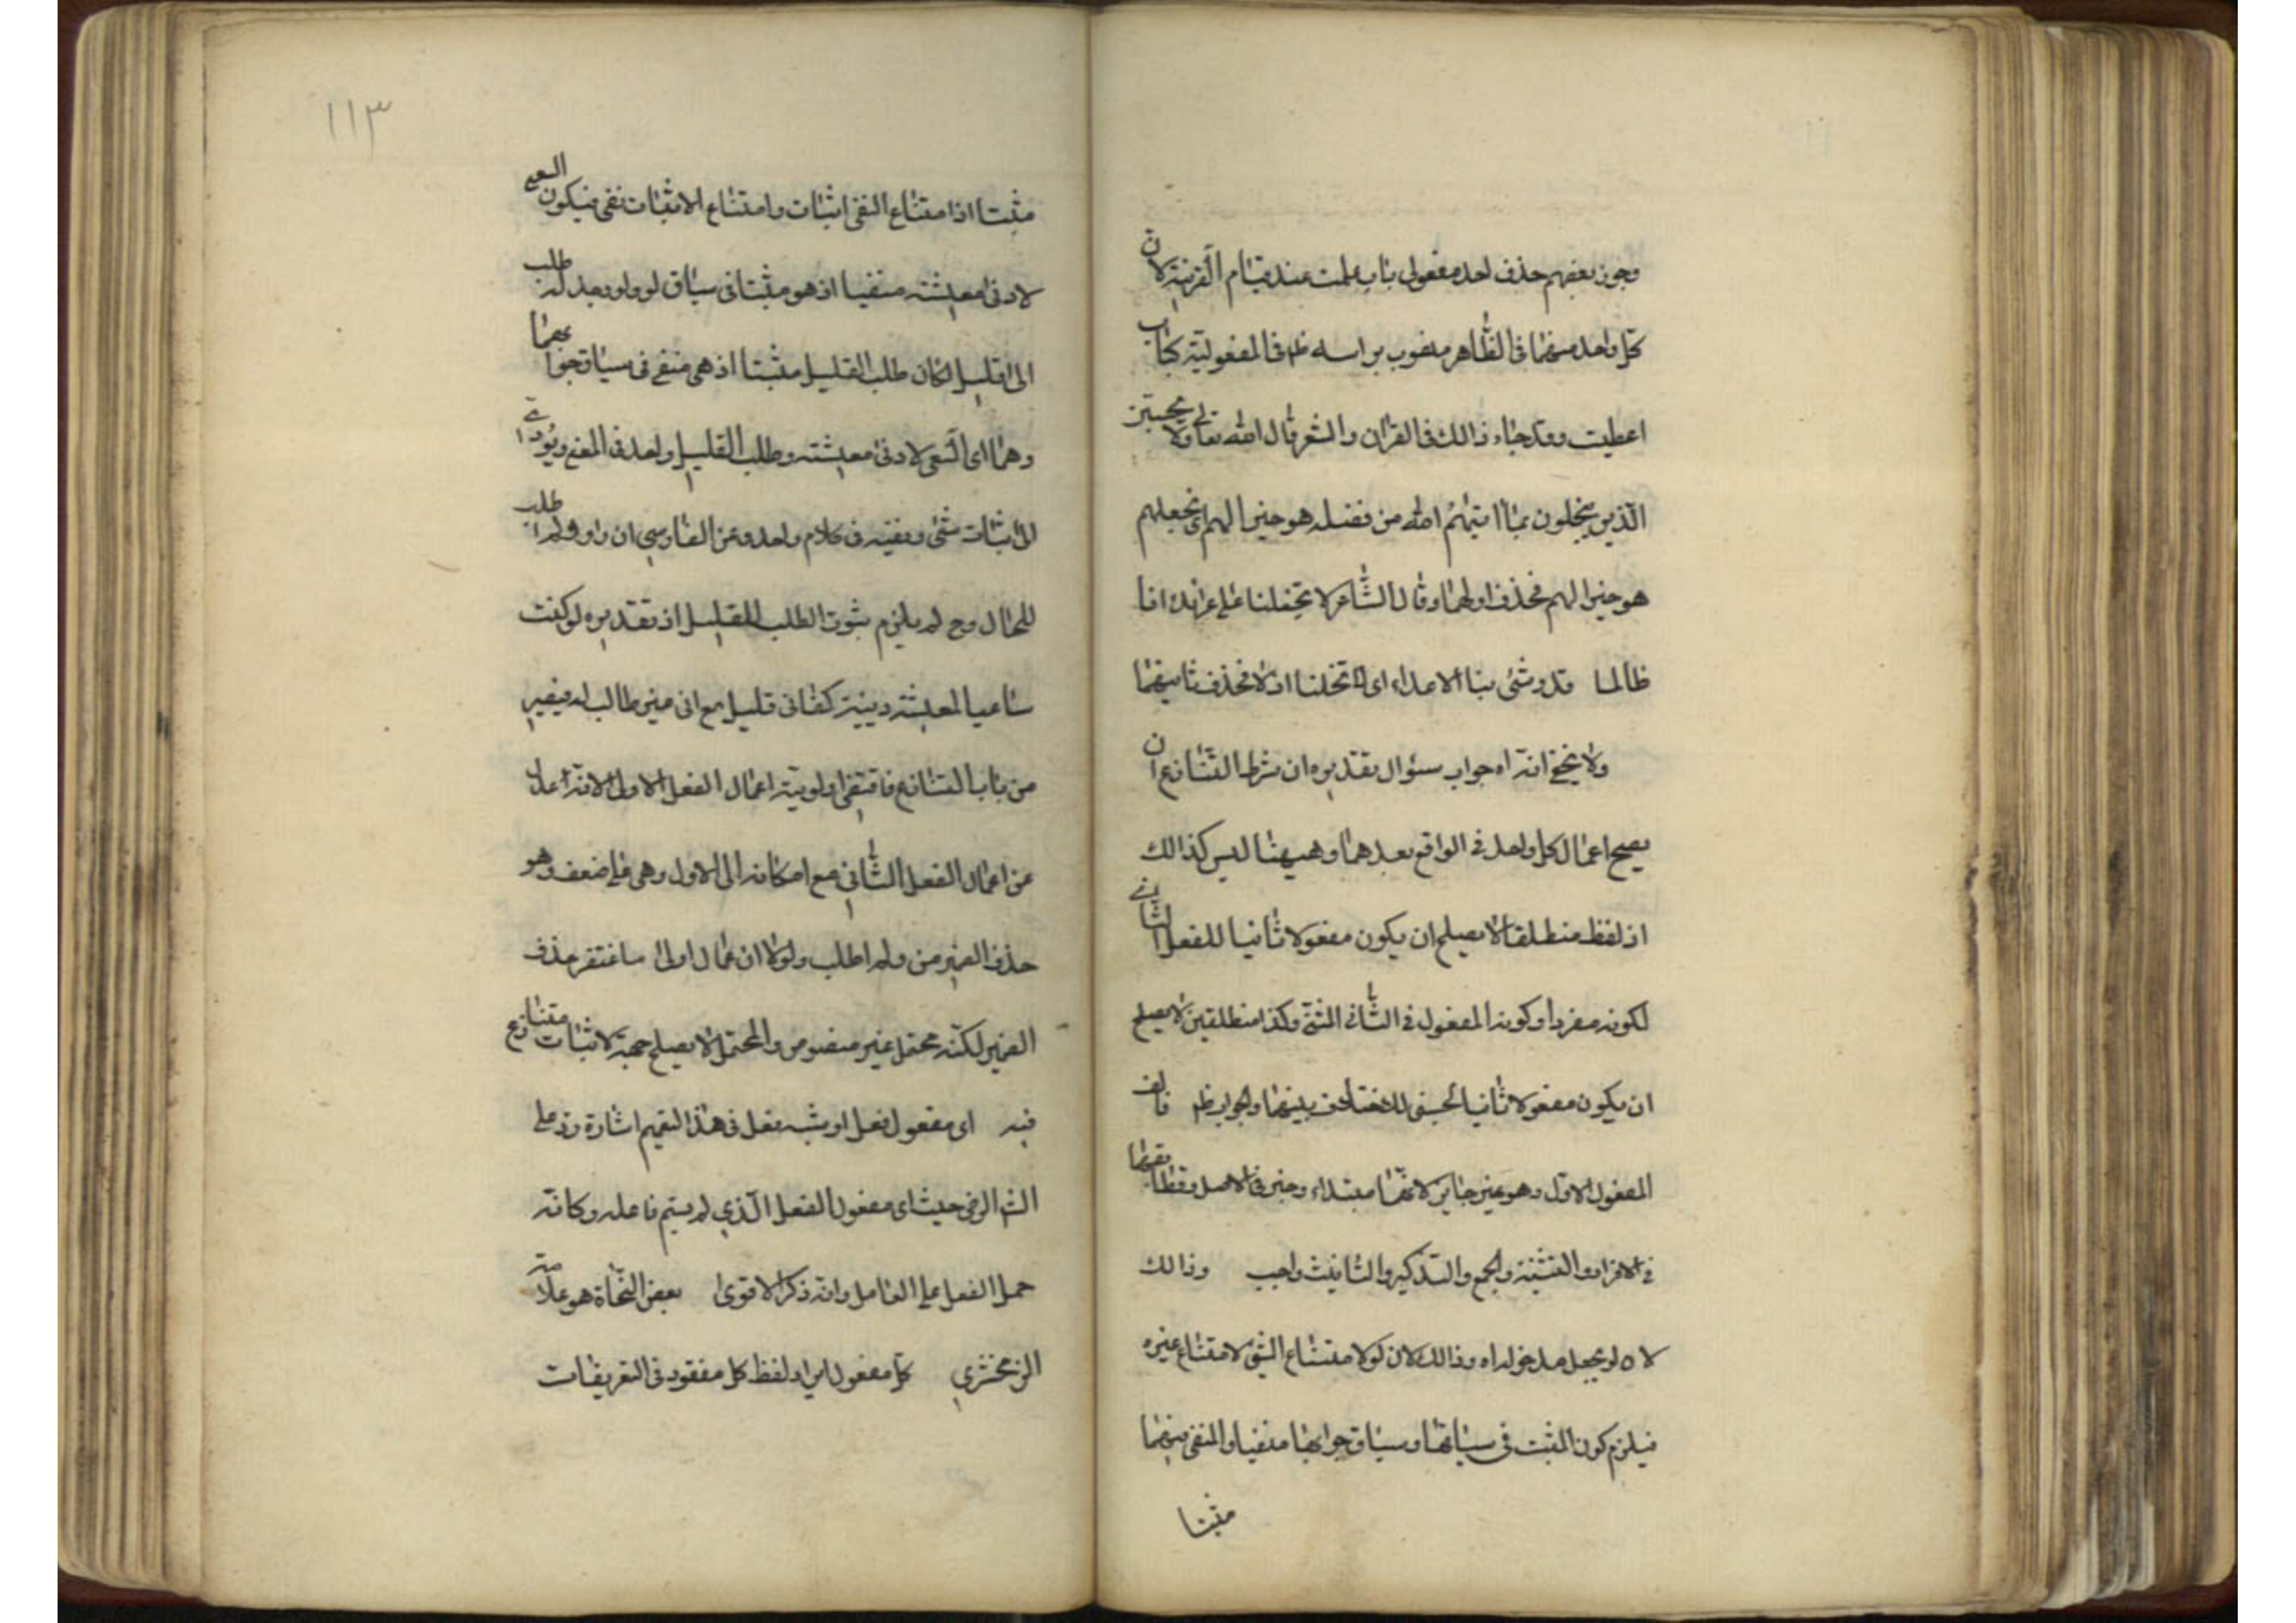 وجوز بعضهم حذف احد مفعولى باب علمت عند قيام القرينة لان
كل واحد منهما فى الظاهر منصوب براسه ظم فى المفعولية كباب
اعطيت وقد جاء ذالك فى القران والشعر قال الله تعالى ولا يحسبن
الذين يبخلون بما اتيهم الله من فضله هو خيرا لهم اى بخلهم
هو خيرا لهم فحذف اولهما وقال الشاعر لا تخلنا على غرائك انا
طالما قد وشى بنا الاعداء اى لا تخلنا اذلا فحذف ثانيهما
ولا يخفى انه اه جواب سئوال تقديره ان شرط التنازع ان
يصح اعمال كل واحد فى الواقع بعدهما وهيهنا ليس كذالك
اذ لفظ منطلقا لا يصلح ان يكون مفعولا ثانيا للفعل الثانى
لكونه مفردا وكون المفعول فى الثانى المثنى وكذا منطلقين لا يصلح
ان يكون مفعولا ثانيا لحسبنى للاختلاف بينهما والجواب ظم
المفعول الاول وهو غير جايز لانهما مبتداء وخبر فى الاصل وتطابقهما
فى الافراد والتثنية والجمع والتذكير والتانيث واجب وذالك
لا ه لو يجعل مدخولها اه وذالك لان لو لامتناع الشئ لامتناع غيره
فيلزم كون المثبت فى سياقها وسياق جوابها منفيا والمنفى فيهما
مثبتا
١١٣
مثبتا اذ امتناع النفى اثبات وامتناع الاثبات نفى فيكون السعى
لادنى معيشته منفيا اذ هو مثبتا فى سياق لو ولو وجد له طلب
الى قليل لكان طلب القليل مثبتا اذ هى منفى فى سياق جوابها
وهما اى السعى لادنى معيشته وطلب القليل واحد فى المعنى ويؤدى
الى اثبات شئ ونفيه فى كلام واحد وعن الفارسى ان واو ولم اطلب
للحال وح لم يلزم ثبوت الطلب للقليل اذ تقديره لو كنت
ساعيا لمعيشة دينية كفانى قليل مع انى غير طالب له فيصير
من باب التنازع فاقتضى اولوية اعمال الفعل الاول لانه اعدل
من اعمال الفعل الثانى مع امكانه الى الاول وهى على ضعف وهو
حذف الضمير من ولم اطلب ولولا ان عمال اولى ما اغتفر حذف
الضمير لكنه محتمل غير منصوص والمحتمل لا يصلح حجة لاثبات متنازع
فيه اى مفعول فعل او شبه فعل فى هذا التعميم اشارة رد على
الش الرضى حيث اى مفعول الفعل الذى لم يسم فاعله وكانه
حمل الفعل على العامل وانه ذكر الاقوى بعض النحاة هو علامة
الزمخشرى كل مفعول ايراد لفظ كل مفقود فى التعريفات